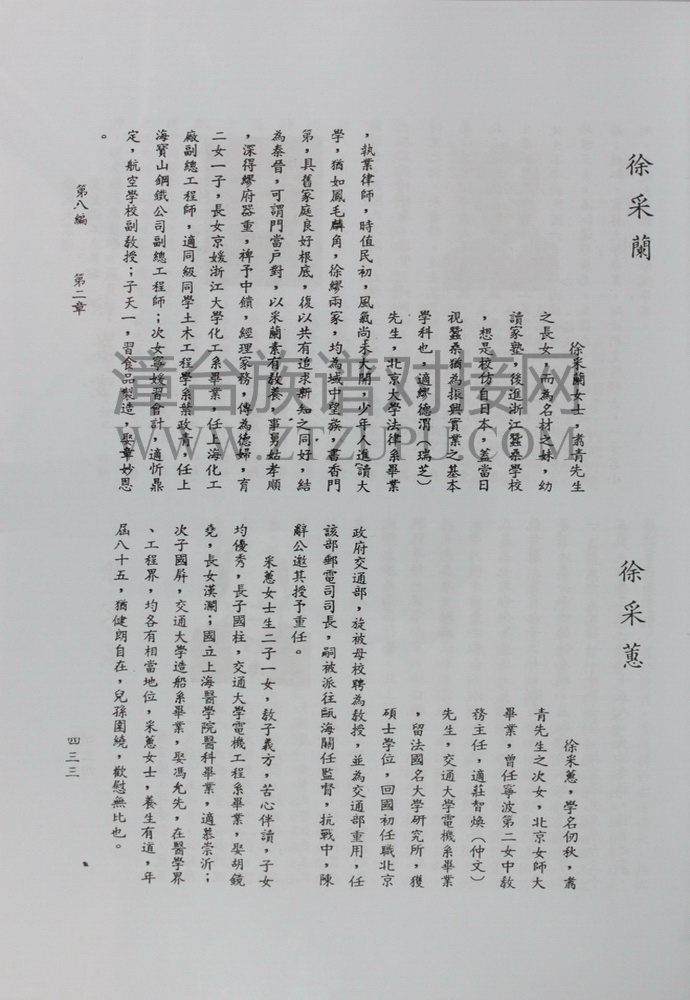 徐采蘭
徐采蘭女士，翥青先生
之長女，而為名材之妹，幼
讀家塾，後進浙江蠶桑學校
，想是校仿自日本，蓋當日
視蠶桑猶為振興實業之基本
學科也，適繆德渭（瑞芝）
先生，北京大學法律系畢業
，執業律師，時值民初，風氣尚未大開，少年人進讀大
學，猶如鳳毛麟角，徐繆兩家，均為城中望族，書香門
第，具舊家庭良好根底，復以共有追求新知之同好，結
為秦晉，可謂門當戶對，以采蘭素有教養，事舅姑孝順
，深得繆府器重，裨予中饋，經理家務，傳為德婦，育
二女一子，長女京媛浙江大學化工系畢業，任上海化工
廠副總工程師，適同級同學土木工程學系葉政青，任上
海寶山鋼鐵公司副總工程師；次女寧媛習會計，適忻鼎
定，航空學校副教授；子天一，習食品製造，娶章妙恩
。
徐采蕙
徐采蕙，學名仞秋，翥
青先生之次女，北京女師大
畢業，曾任寧波第二女中教
務主任，適莊智煥（仲文）
先生，交通大學電機系畢業
，留法國名大學研究所，獲
碩士學位，回國初任職北京
政府交通部，旋被母校聘為教授，並為交通部重用，任
該部郵電司司長，嗣被派往甌海關任監督，抗戰中，陳
辭公邀其授予重任。
采蕙女士生二子一女，教子義方，苦心伴讀，子女
均優秀，長子國柱，交通大學電機工程系畢業，娶胡鏡
堯，長女漢瀾；國立上海醫學院醫科畢業，適慕崇沂；
次子國屏，交通大學造船系畢業，娶馮允先，在醫學界
、工程界，均各有相當地位，采蕙女士，養生有道，年
屆八十五，猶健朗自在，兒孫圍繞，歡慰無比也。
第八編 第二章
四三三
漳台族谱对接网
WWW.ZTZUPU.COM